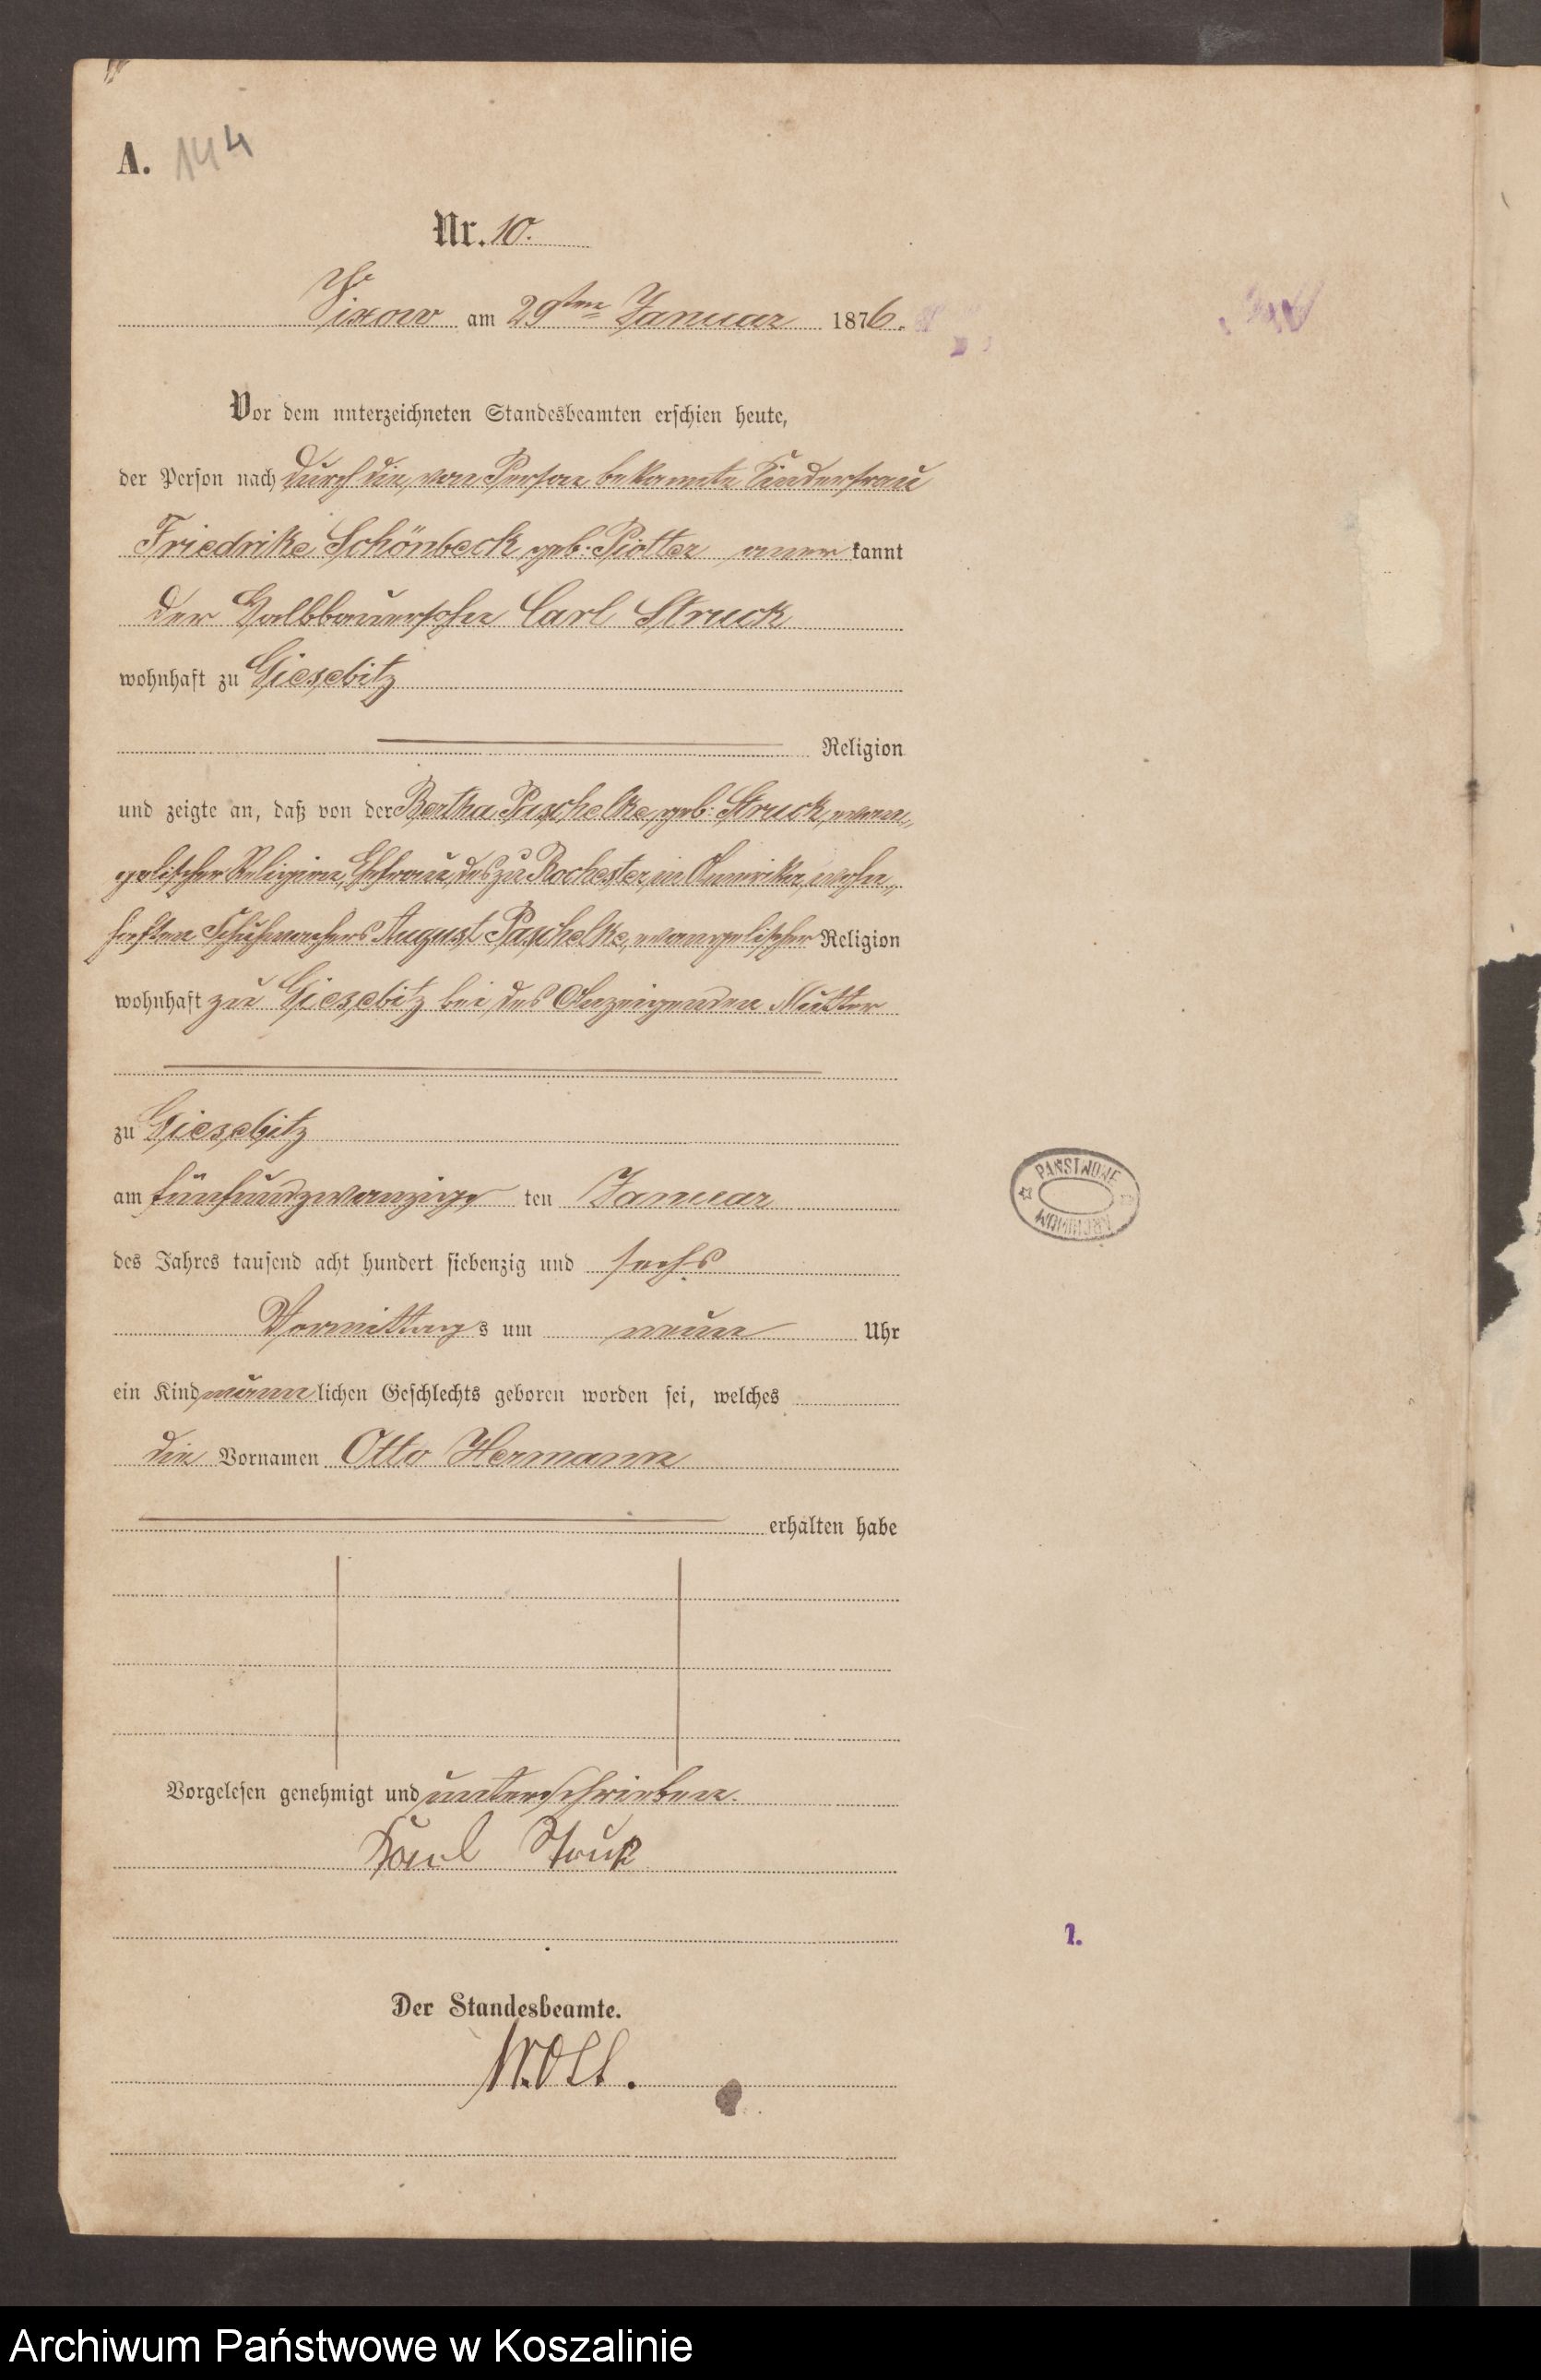 A. 144
Nr. 10.
Vixow am 29ten Januar 1876.
Vor dem unterzeichneten Standesbeamten erschien heute,
der Person nach durch die, von Person bekannte Kinderfrau
Friedrike Schönbeck geb: Piotter aner kannt
der Halbbauersohn Carl Struck
wohnhaft zu Giesebitz
Religion
und zeigte an, daß von der Bertha Paschelke, geb: Struck, evan„
gelischer Religion, Ehefrau des zu Rochester, in Amerika, wohn„
haften Schuhmachers August Paschelke, evangelischer Religion
wohnhaft zu Giesebitz bei des Anzeigenden Mutter
zu Giesebitz
am fünfundzwanzigs ten Januar
des Jahres tausend acht hundert siebenzig und sechs
Vormittags um neun Uhr
ein Kind männlichen Geschlechts geboren worden sei, welches
die Vornamen Otto Hermann
erhalten habe
Vorgelesen genehmigt und unterschrieben.
Karl Struk
PAŃSTWOWE ARCHIWUM
1.
Der Standesbeamte.
Archiwum Państwowe w Koszalinie